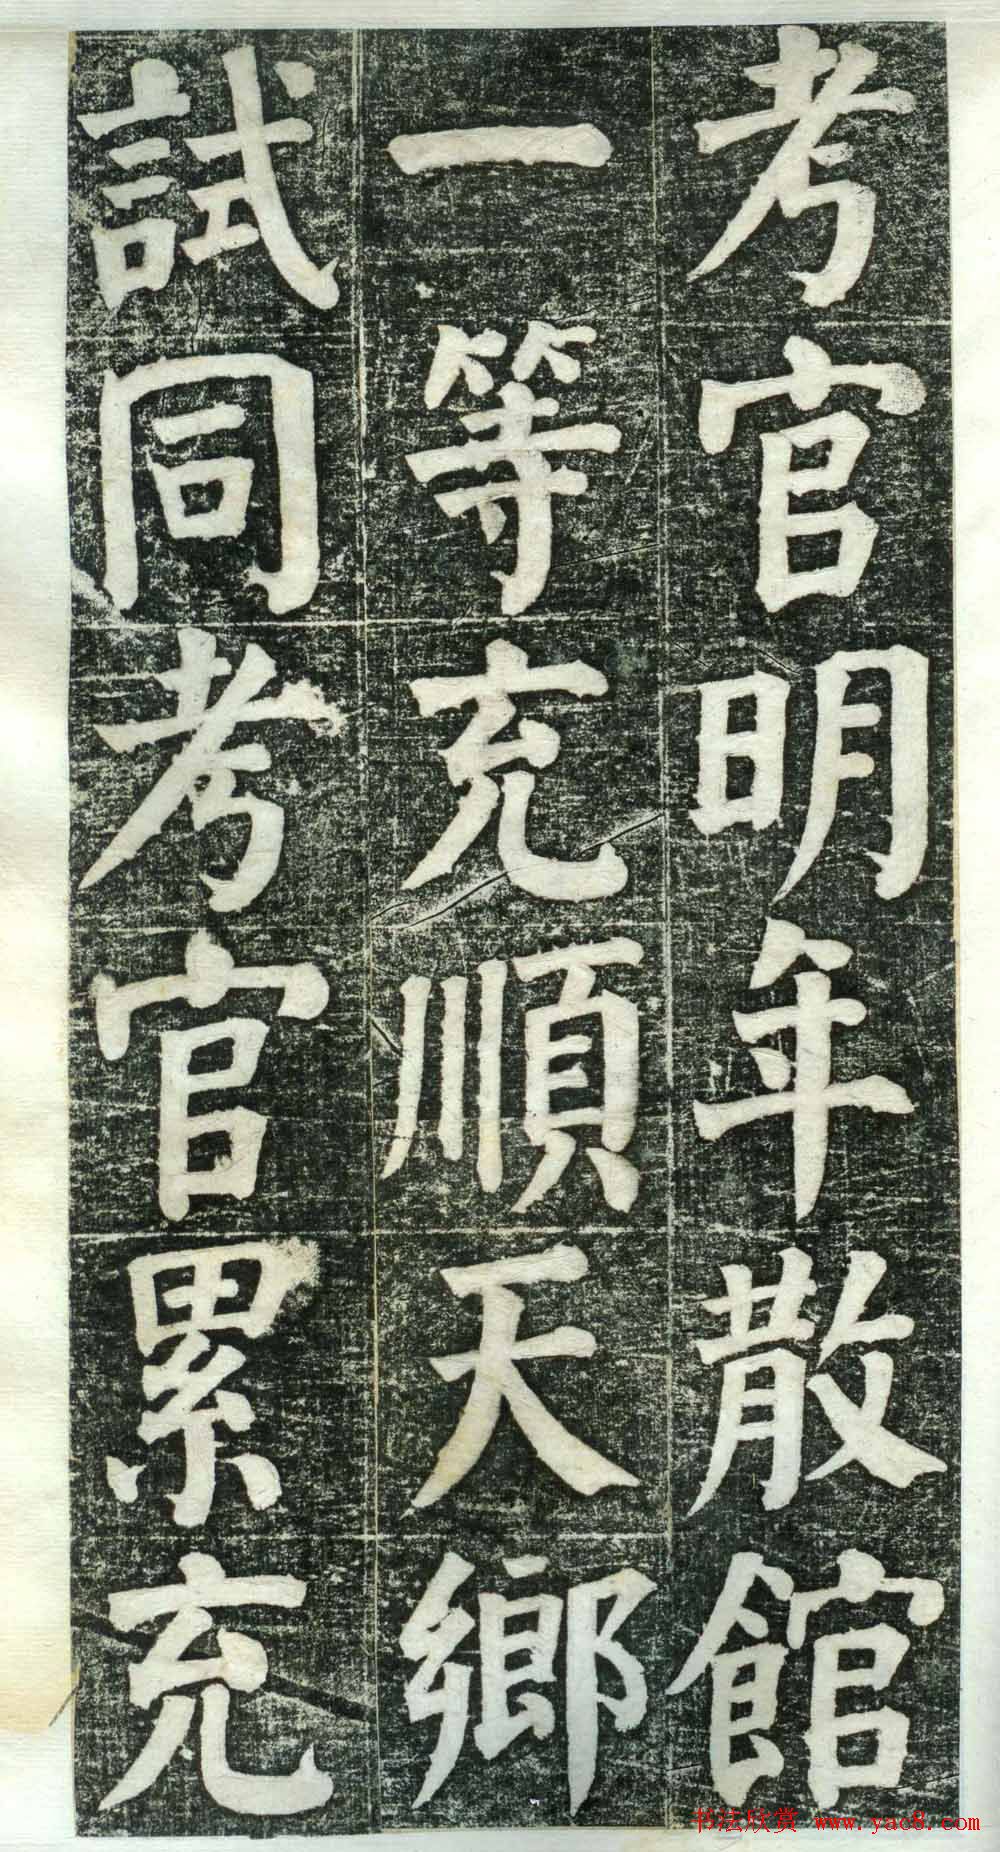 考官明年散館
一等充順天鄉
試同考官累充
书法欣赏 www.yac8.com
5